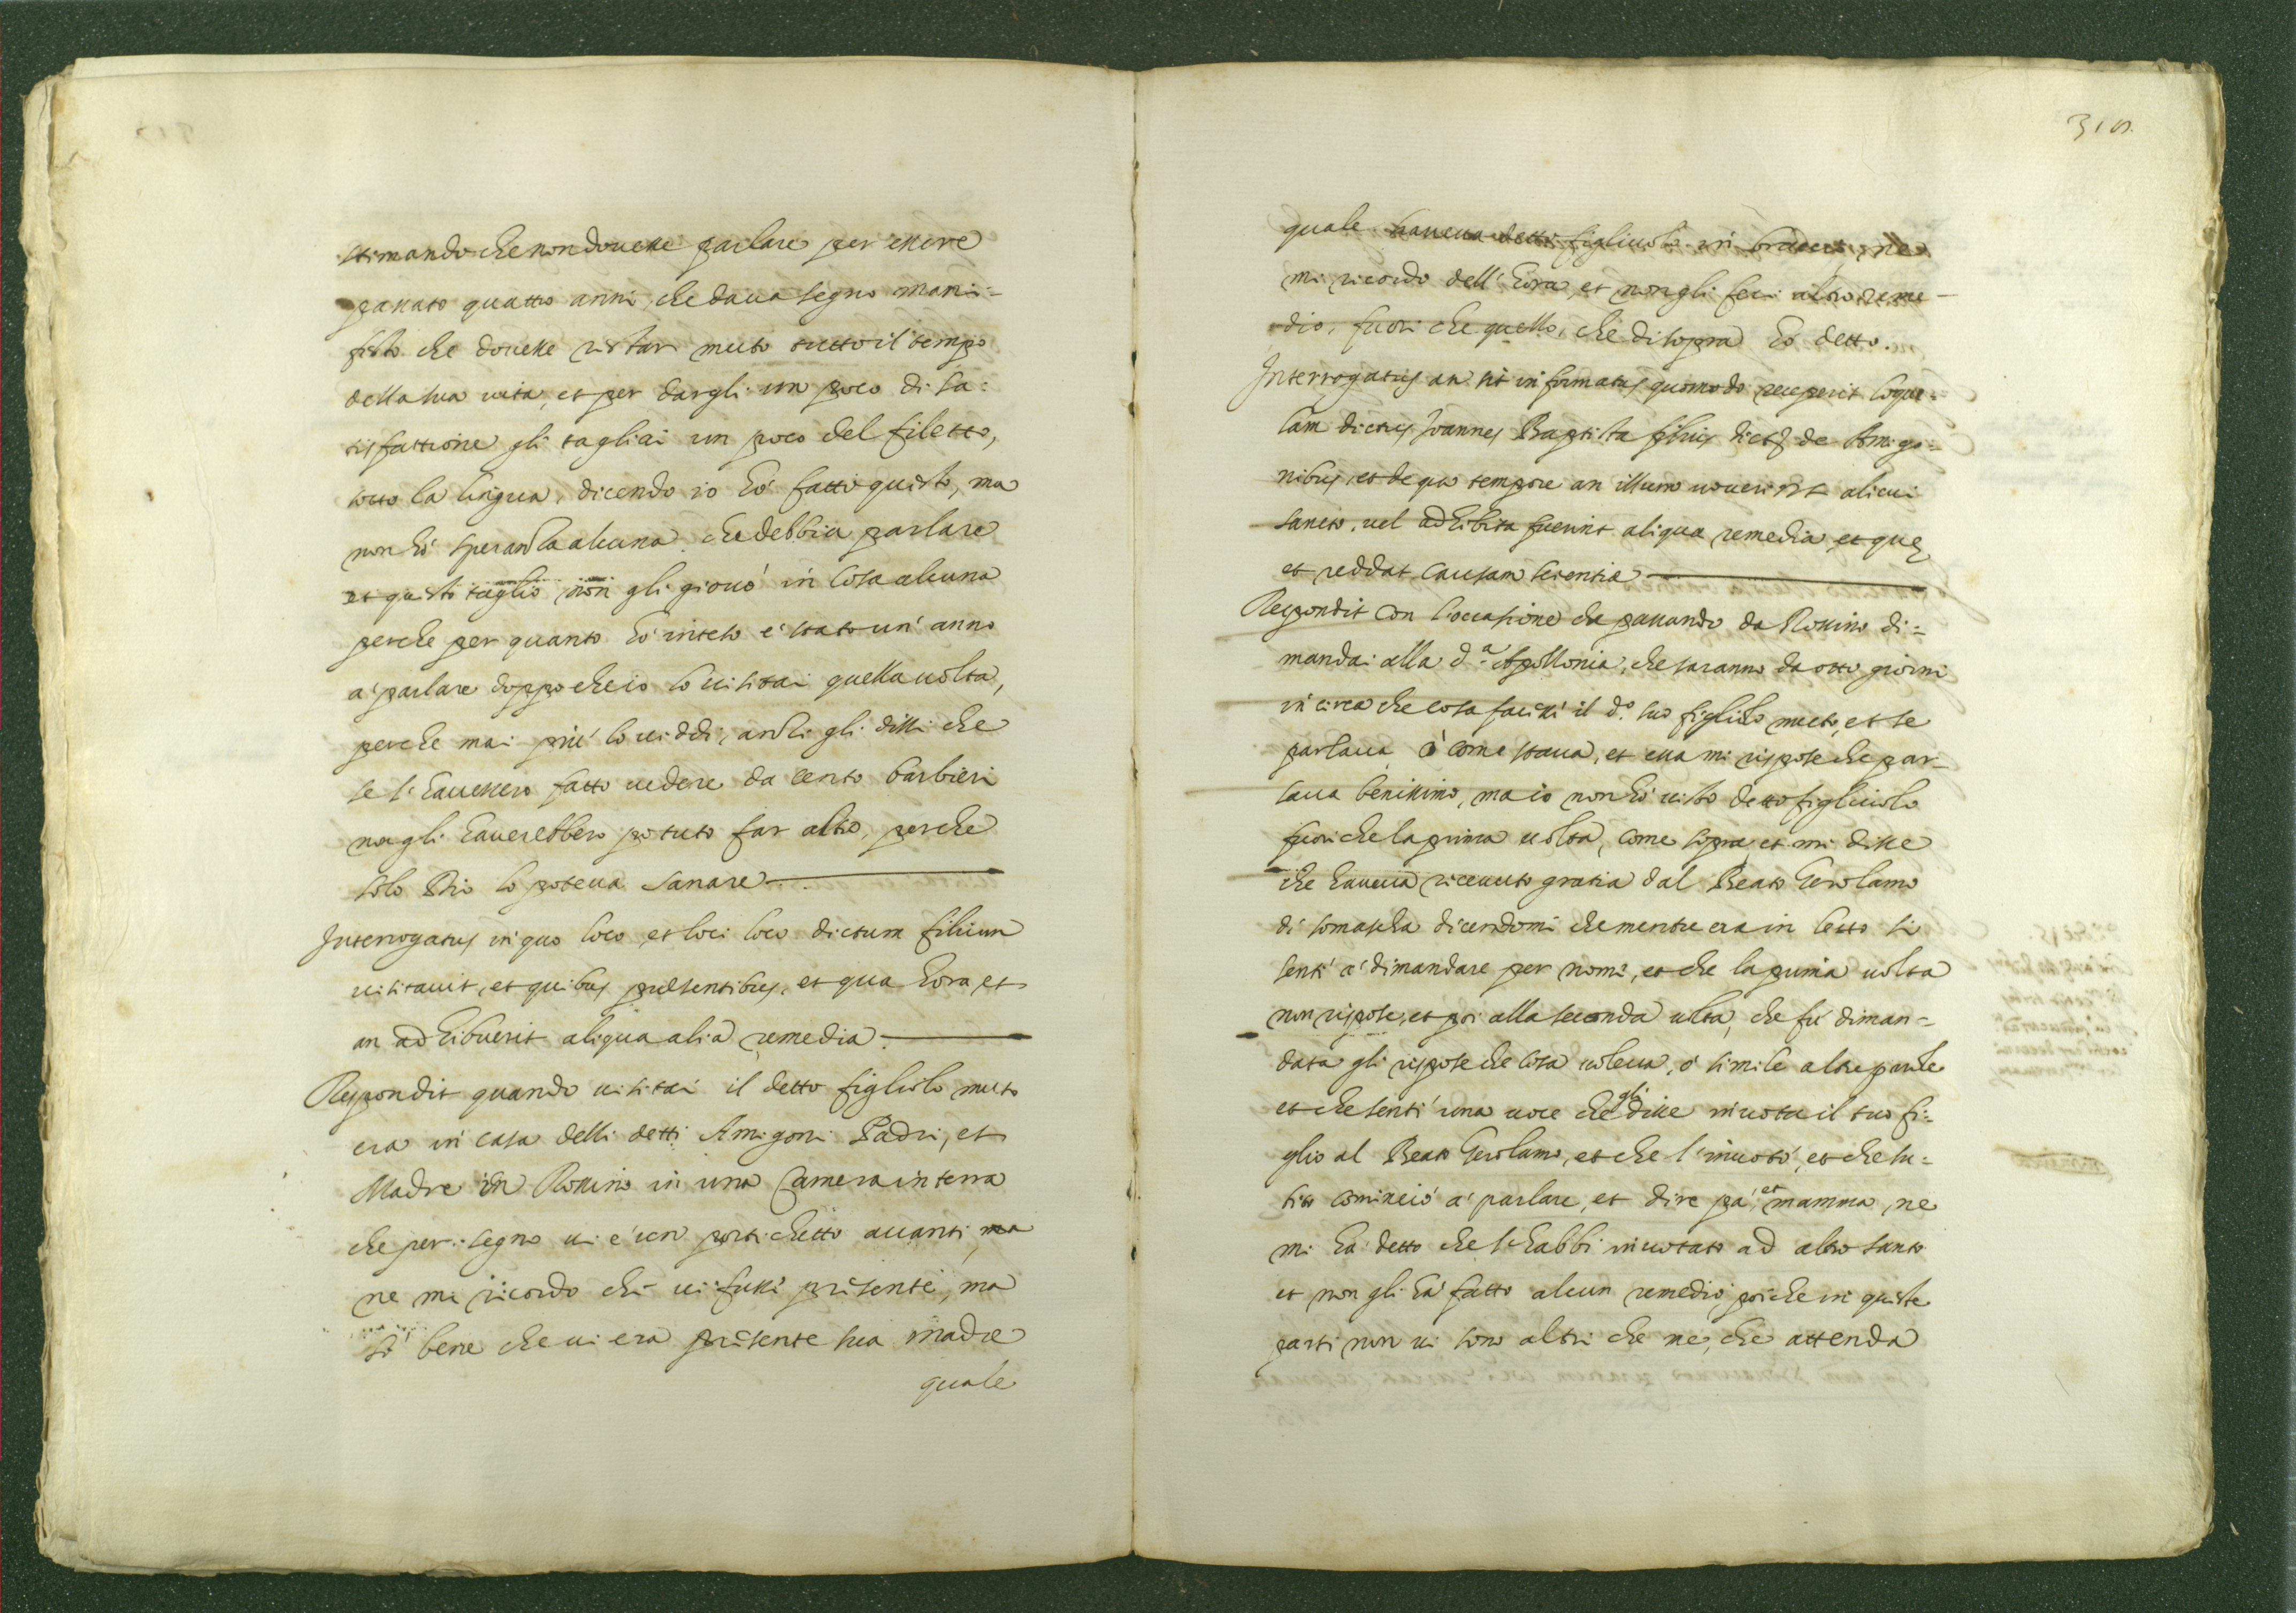 stimando che non douesse parlare per essere
passato quattro anni, che daua segno mani-
festo che douesse restar muto tutto il tempo
della sua uita, et per dargli un poco di sa-
tisfattione gli tagliai un poco del filetto,
sotto la lingua, dicendo io hò fatto questo, ma
non hò speranza alcuna che debbia parlare
et questo taglio non gli giouò in cosa alcuna
perche per quanto hò inteso è stato un' anno
a' parlare doppo che io lo uisitai quella uolta,
perche mai più lo uiddi, anzi gli dissi che
se l' hauessero fatto uedere da cento barbieri
non gli hauerebbero potuto far altro, perche
solo Dio lo poteua sanare
Interrogatus in quo loco, et loci loco dictum filium
uisitauit, et quibus presentibus, et qua hora, et
an adhibuerit aliqua alia remedia.
Respondit quando uisitai il detto figliolo muto
era in casa delli detti Amigoni Padre, et
Madre in Rossino in una Camera in terra
che per segno ui è un portichetto auanti, ma
ne mi ricordo chi ui fusse presente, ma
sò bene che ui era presente sua madre
quale
quale haueua detto figliuolo in braccio, ne
mi ricordo dell' hora, et non gli feci altro reme-
dio, fuori che quello, che di sopra hò detto.
Interrogatus an sit informatus quomodo receperit loque-
lam dictus Ioannes Baptista filius dictor de Amigo-
nibus, et de quo tempore an illum uouerint alicui
sancto, uel adhibita fuerint aliqua remedia et que,
et reddat causam scientiæ
Respondit con l'occasione che passando da Rossino di-
mandai alla d.a Apollonia, che saranno da otto giorni
in circa che cosa facesse il d.o suo figliolo muto, et se
parlaua ò come staua, et essa mi rispose che par-
laua benissimo, ma io non hò uisto detto figliuolo
fuori che la prima uolta, come sopra, et mi disse
che haueua riceuuto gratia dal Beato Gerolamo
di somascha dicendomi che mentre era in letto si
sentì a' dimandare per nome, et che la prima uolta
non rispose, et poi alla seconda uolta, che fù diman-
data gli rispose che cosa uoleua, ò simile altre parole
et che sentì una uoce che gli disse inuota il tuo fi-
glio al Beato Gerolamo, et che l' inuotò, et che su-
bito cominciò a' parlare, et dire pà, et mamma, ne
mi hà detto che l' habbi inuotato ad altro santo
et non gli hà fatto alcun remedio, poiche in queste
parti non ui sono altri che me, che attenda